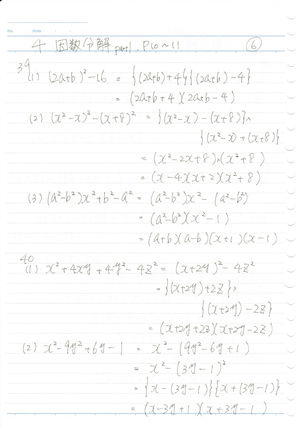 4 因数分解 part1. P10~11 ⑥
39
(1) (2a+b)²-16 = {(2a+b)+4}{(2a+b)-4}
= (2a+b+4)(2a+b-4)
(2) (x²-x)²-(x+8)² = {(x²-x)-(x+8)}×
{(x²-x)+(x+8)}
= (x²-2x+8)(x²+8)
= (x-4)(x+2)(x²+8)
(3) (a²-b²)x²+b²-a² = (a²-b²)x²-(a²-b²)
= (a²-b²)(x²-1)
= (a+b)(a-b)(x+1)(x-1)
40
(1) x²+4xy+4y²-4z² = (x+2y)²-4z²
= {(x+2y)+2z}×
{(x+2y)-2z}
= (x+2y+2z)(x+2y-2z)
(2) x²-9y²+6y-1 = x²-(9y²-6y+1)
= x²-(3y-1)²
= {x-(3y-1)}{x+(3y-1)}
= (x-3y+1)(x+3y-1)